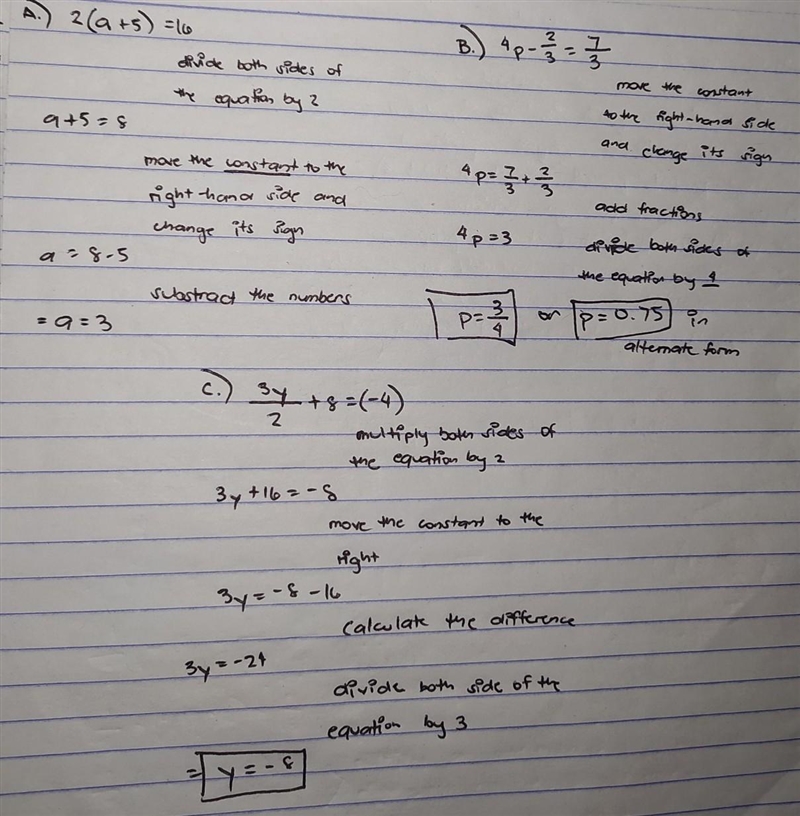 A.) 2(a+5) = 16
divide both sides of
the equation by 2
a+5 = 8
move the constant to the
right-hand side and
change its sign
a = 8-5
substract the numbers
= a = 3
B.) 4p - 2/3 = 7/3
move the constant
to the right-hand side
and change its sign
4p = 7/3 + 2/3
add fractions
4p = 3
divide both sides of
the equation by 4
p = 3/4 or p = 0.75 in
alternate form
C.) 3y/2 + 8 = (-4)
multiply both sides of
the equation by 2
3y + 16 = -8
move the constant to the
right
3y = -8 - 16
calculate the difference
3y = -24
divide both side of the
equation by 3
= y = -8